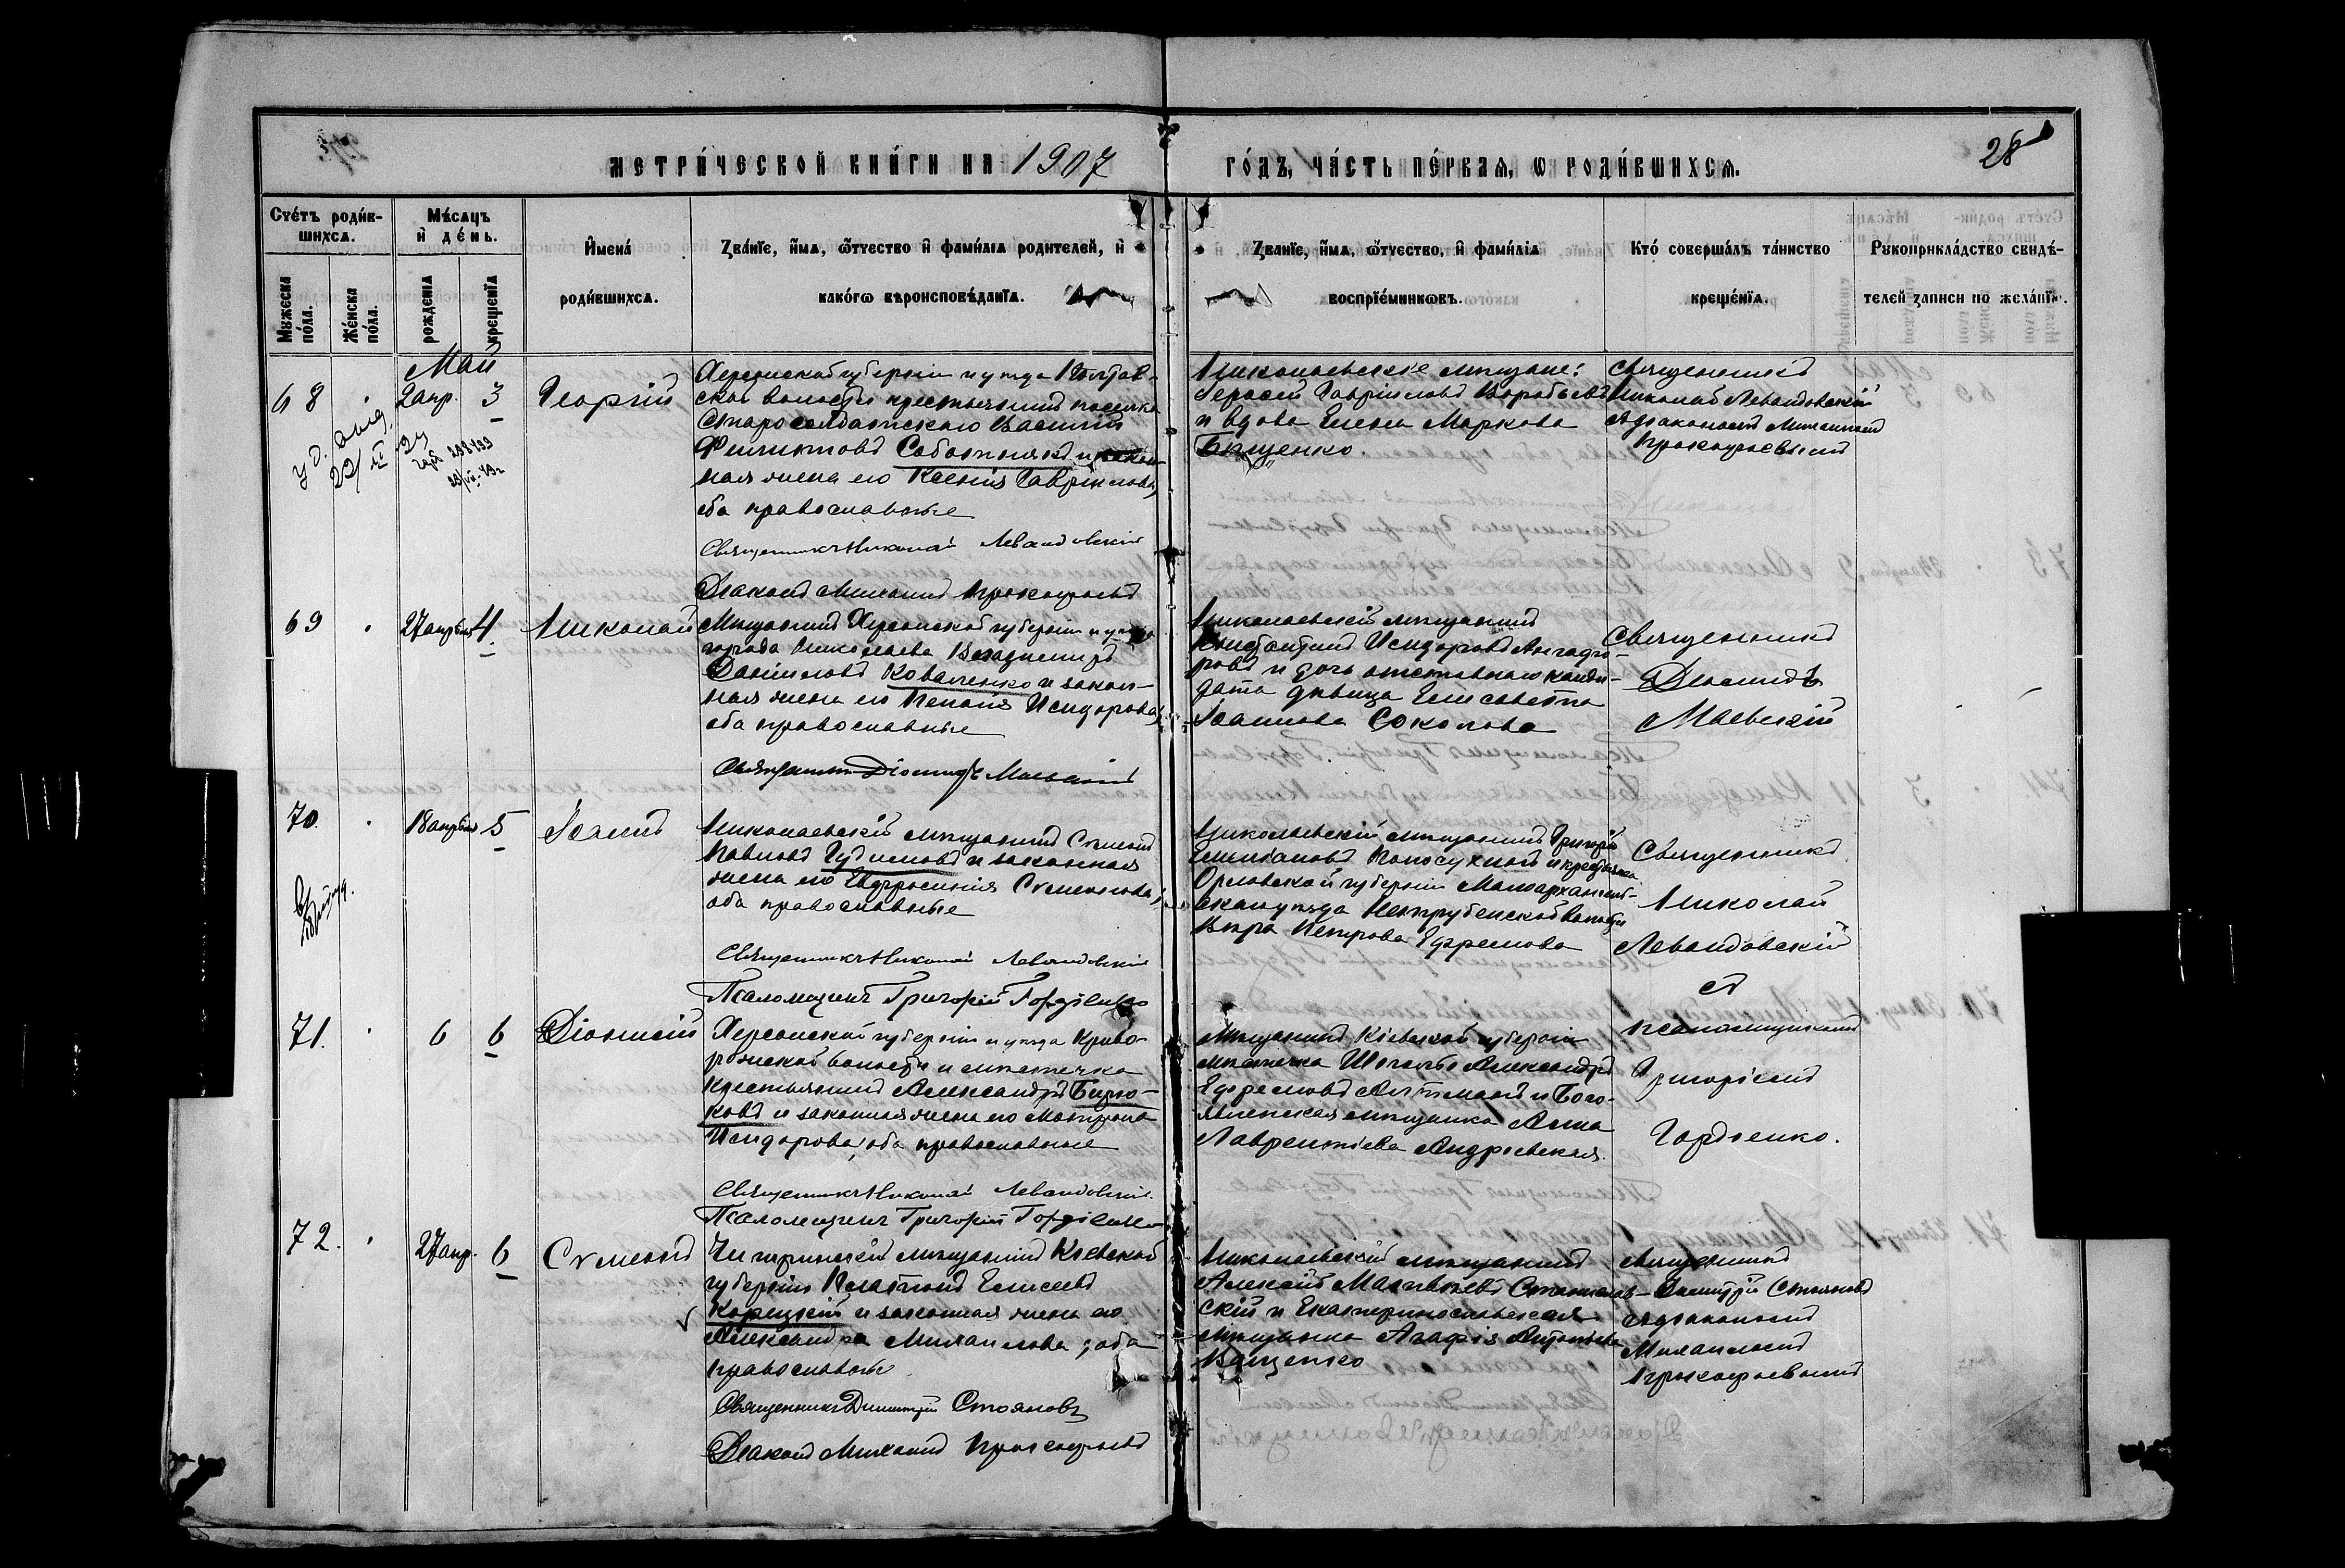 метрической книги на 1907
годъ, часть первая, ѡ родившихся.
28
Счетъ родив-
шихся.
Мѣсяцъ
и день.
Имена
родившихся.
Званїе, имя, ѿчество и фамилїа родителей, и
какогѡ вѣроисповѣданїя.
Званїе, имя, ѿчество, и фамилїа
воспрїемниковъ.
Кто совершалъ таинство
крещенїя.
Рукоприкладство свидѣ-
телей записи по желанїю.
Мужеска
пола.
Женска
пола.
рожденїа
крещенїа
Май
68
2 апр.
3
Георгій
Херсонской губерніи и уѣзда Полтав-
ской волости крестьянинъ поселка
Старосолдатскаго Василій
Филиповъ и закон-
ная жена его Ксенія Гавріилова,
оба православные
Священникъ Николай Левандовскій
Діаконъ Михаилъ Прокофьевъ
Николаевскіе мѣщане:
Герасій Гавріиловъ Воробьевъ
и вдова Елена Маркова
Бищенко.
Священникъ
Николай Левандовскій
съ діакономъ Михаиломъ
Прокофьевымъ
69
27 апрѣля
4
Николай
Мѣщанинъ Херсонской губерніи и уѣзда
города Николаева Владиміръ
Даніиловъ Коваленко и закон-
ная жена его Пелагія Исидорова,
оба православные
Священникъ Діомидъ Маевскій
Николаевскій мѣщанинъ
Исидоровъ
и дочь отставнаго канди-
дата дѣвица Елисавета
Іоаннова Соколова
Священникъ
Діомидъ
Маевскій
70.
18 апрѣля
5
Іоаннъ
Николаевскій мѣщанинъ Сѵмеонъ
Павловъ и законная
жена его Евфросинія Сѵмеонова,
оба православные
Священникъ Николай Левандовскій
Псаломщикъ Григорій Гордіенко
Николаевскій мѣщанинъ Григорій
и крестьянка
Орловской губерніи Малоархангель-
скаго уѣзда волости
Вѣра Петрова Ефремова
Священникъ
Николай
Левандовскій
съ
псаломщикомъ
Григоріемъ
Гордіенко.
71.
6
6
Діонисій
Херсонской губерніи и уѣзда Криво-
рожской волости и мѣстечка
крестьянинъ Александръ Бирю-
ковъ и законная жена его Матрона
Исидорова, оба православные
Священникъ Николай Левандовскій
Псаломщикъ Григорій Гордіенко
Мѣщанинъ Кіевской губерніи
мѣстечка Шполы Александръ
Ефремовъ и Бого-
явленская мѣщанка Анна
Лаврентіева Андріевская.
72.
27 апр.
6
Сѵмеонъ
Чигиринскій мѣщанинъ Кіевской
губерніи Платонъ Елисеевъ
Корецкій и законная жена его
Александра Михаилова; оба
православные
Священникъ Димитрій Стояновъ
Діаконъ Михаилъ Прокофьевъ
Николаевскій мѣщанинъ
Алексѣй Матвѣевъ Станислав-
скій и Екатеринославская
мѣщанка Агафія Антоньева
Ващенко
Священникъ
Димитрій Стояновъ
съ діакономъ
Михаиломъ
Прокофьевымъ